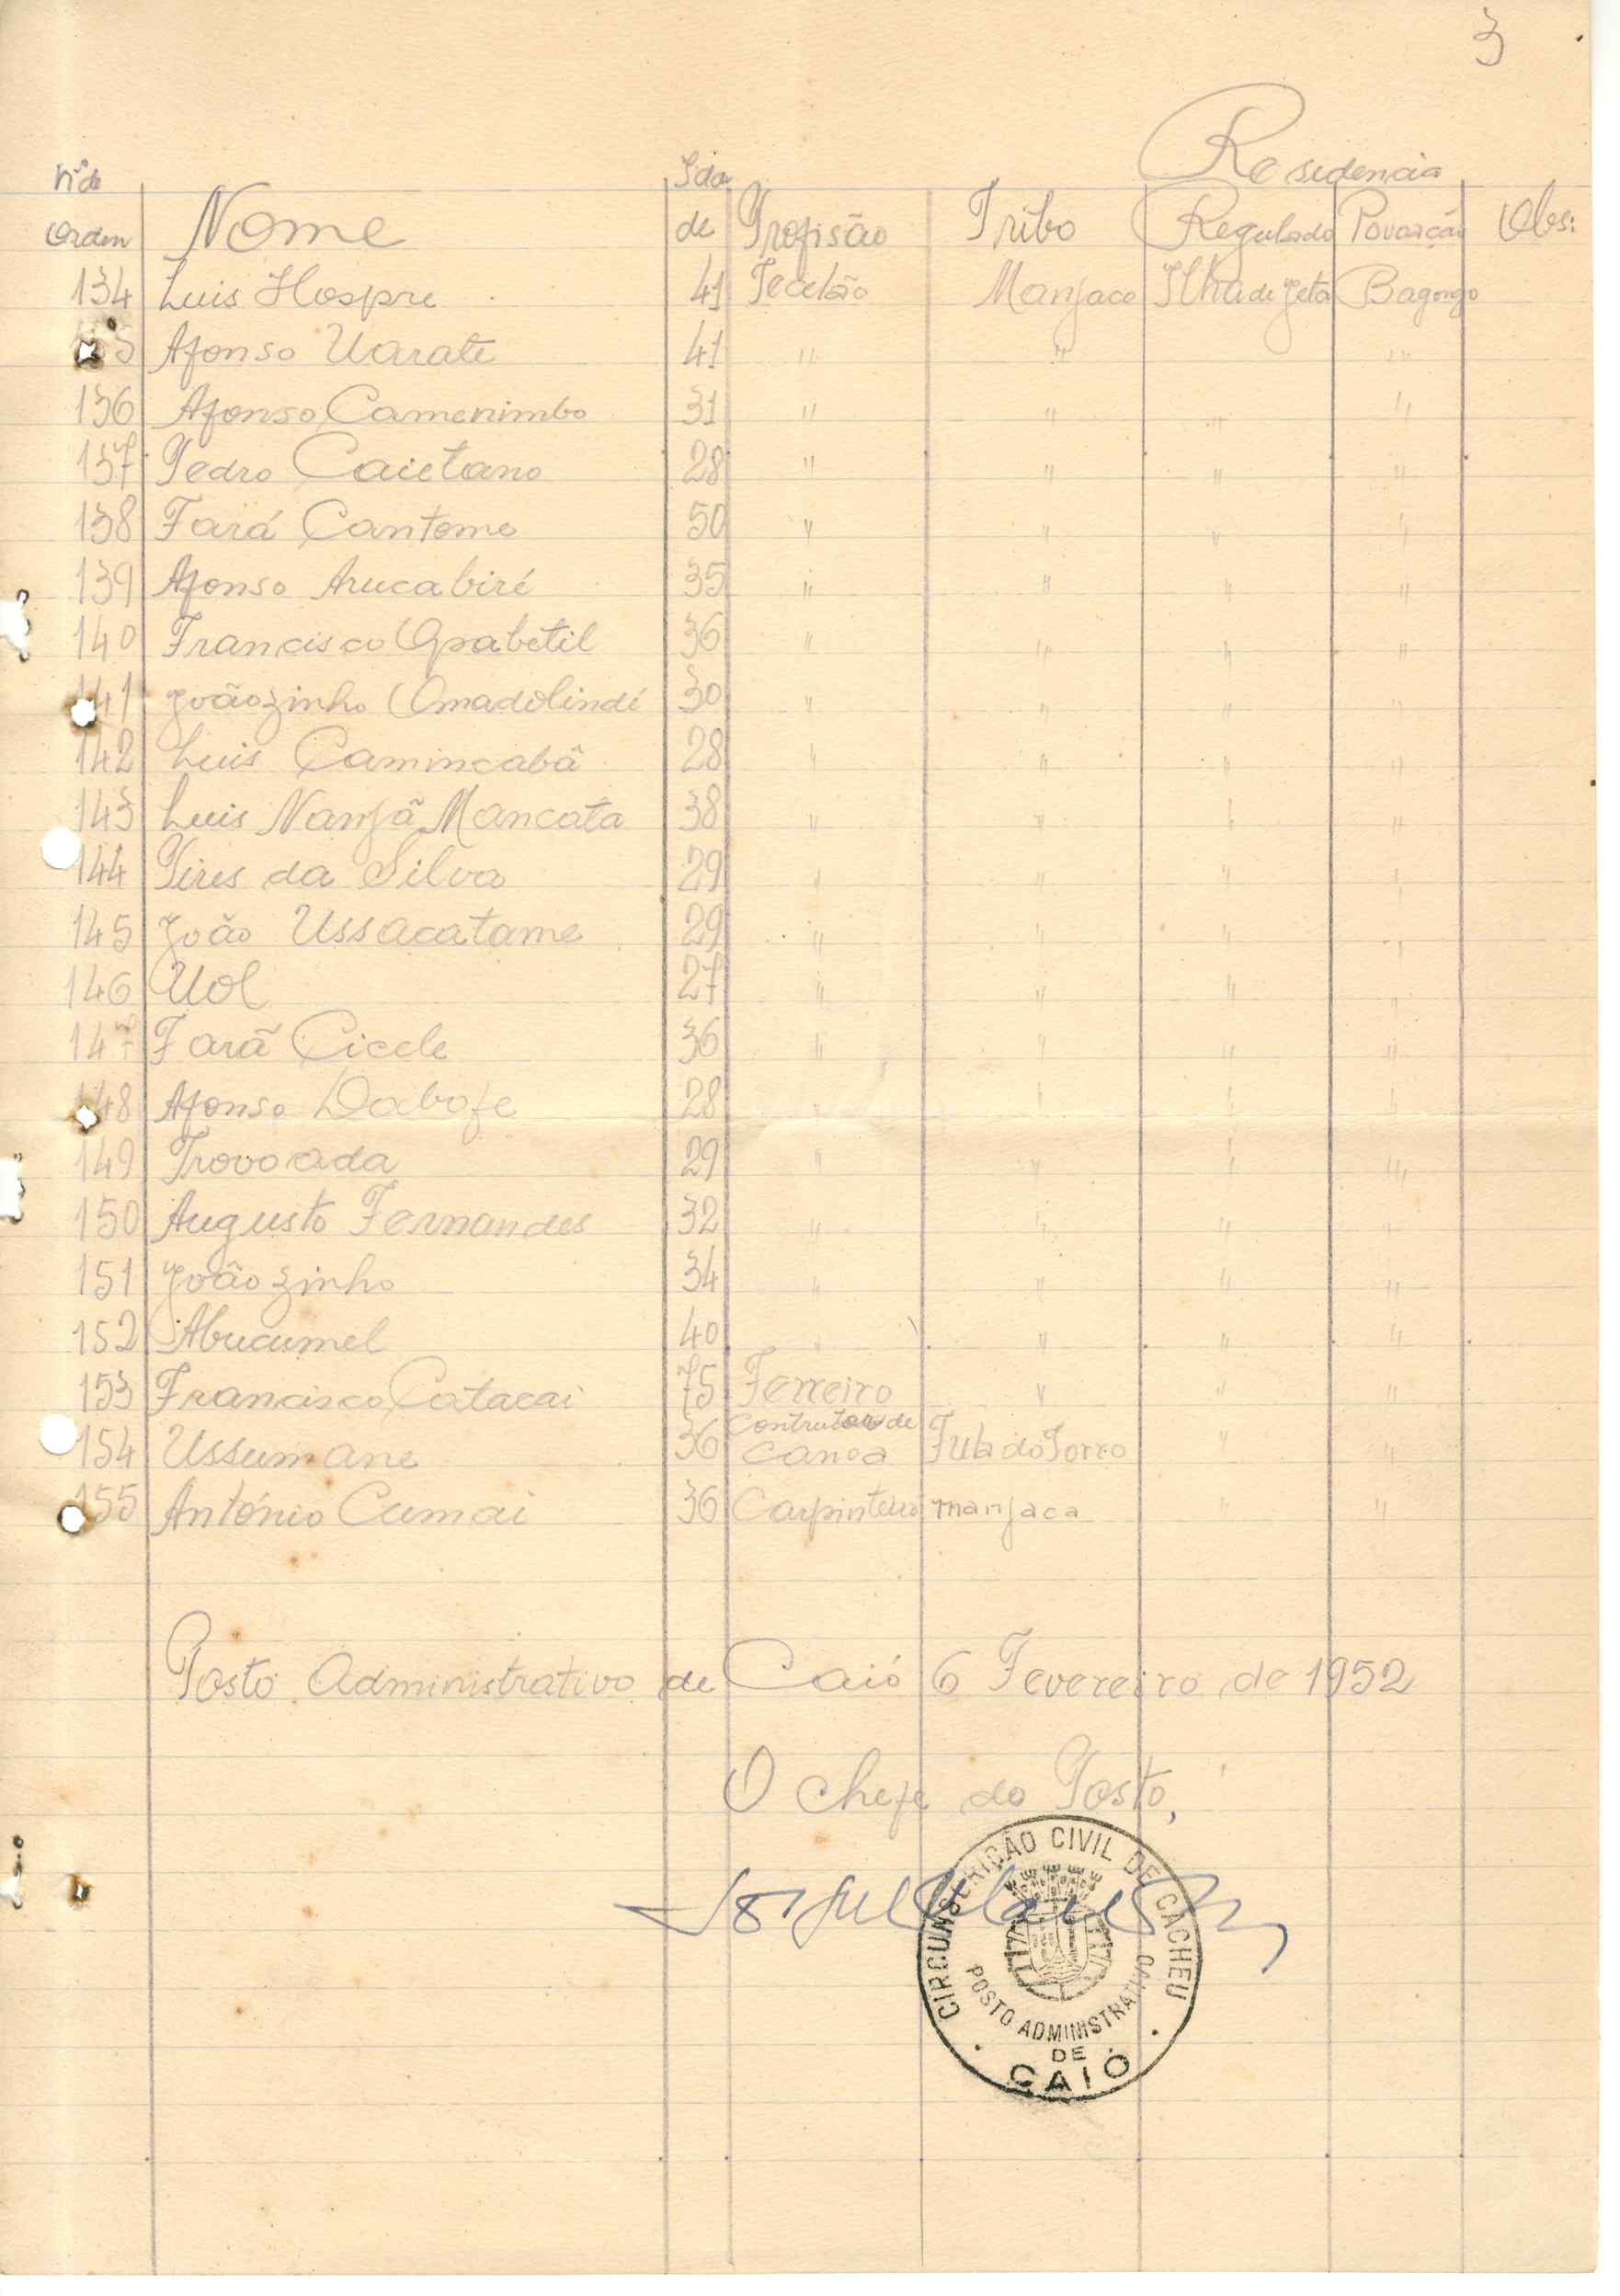 3
Residencia
Nº de Orden Nome Idade Profisão Tribo Regulado Povoação Obs:
134 Luis Hospre 41 Tecelão Manjaco Ilha de Jeta Bagongo
135 Afonso Uarate 41 " " "
136 Afonso Camenimbo 31 " " " "
137 Pedro Caietano 28 " " " "
138 Fará Cantome 50 " " " "
139 Afonso Arucabiré 35 " " " "
140 Francisco Opabetil 36 " " " "
141 Joãozinho Omadolindi 30 " " " "
142 Luis Camincabã 28 " " " "
143 Luis Nanjã Mancata 38 " " " "
144 Pires da Silva 29 " " " "
145 João Ussacatame 29 " " " "
146 Uol 27 " " " "
147 Farã Cicele 36 " " " "
148 Afonso Dabofe 28 " " " "
149 Trovoada 29 " " " "
150 Augusto Fernandes 32 " " " "
151 Joãozinho 34 " " " "
152 Abucumel 40 " " " "
153 Francisco Catacai 75 Ferreiro " " "
154 Ussumane 36 Contrutor de canoa Fula do Forro " "
155 António Cumai 36 Carpinteiro manjaca " "
Posto Administrativo de Caió 6 Fevereiro de 1952
O chefe do Posto,
CIRCUNSCRIÇÃO CIVIL DE CACHEU
POSTO ADMINISTRATIVO
DE
CAIÓ